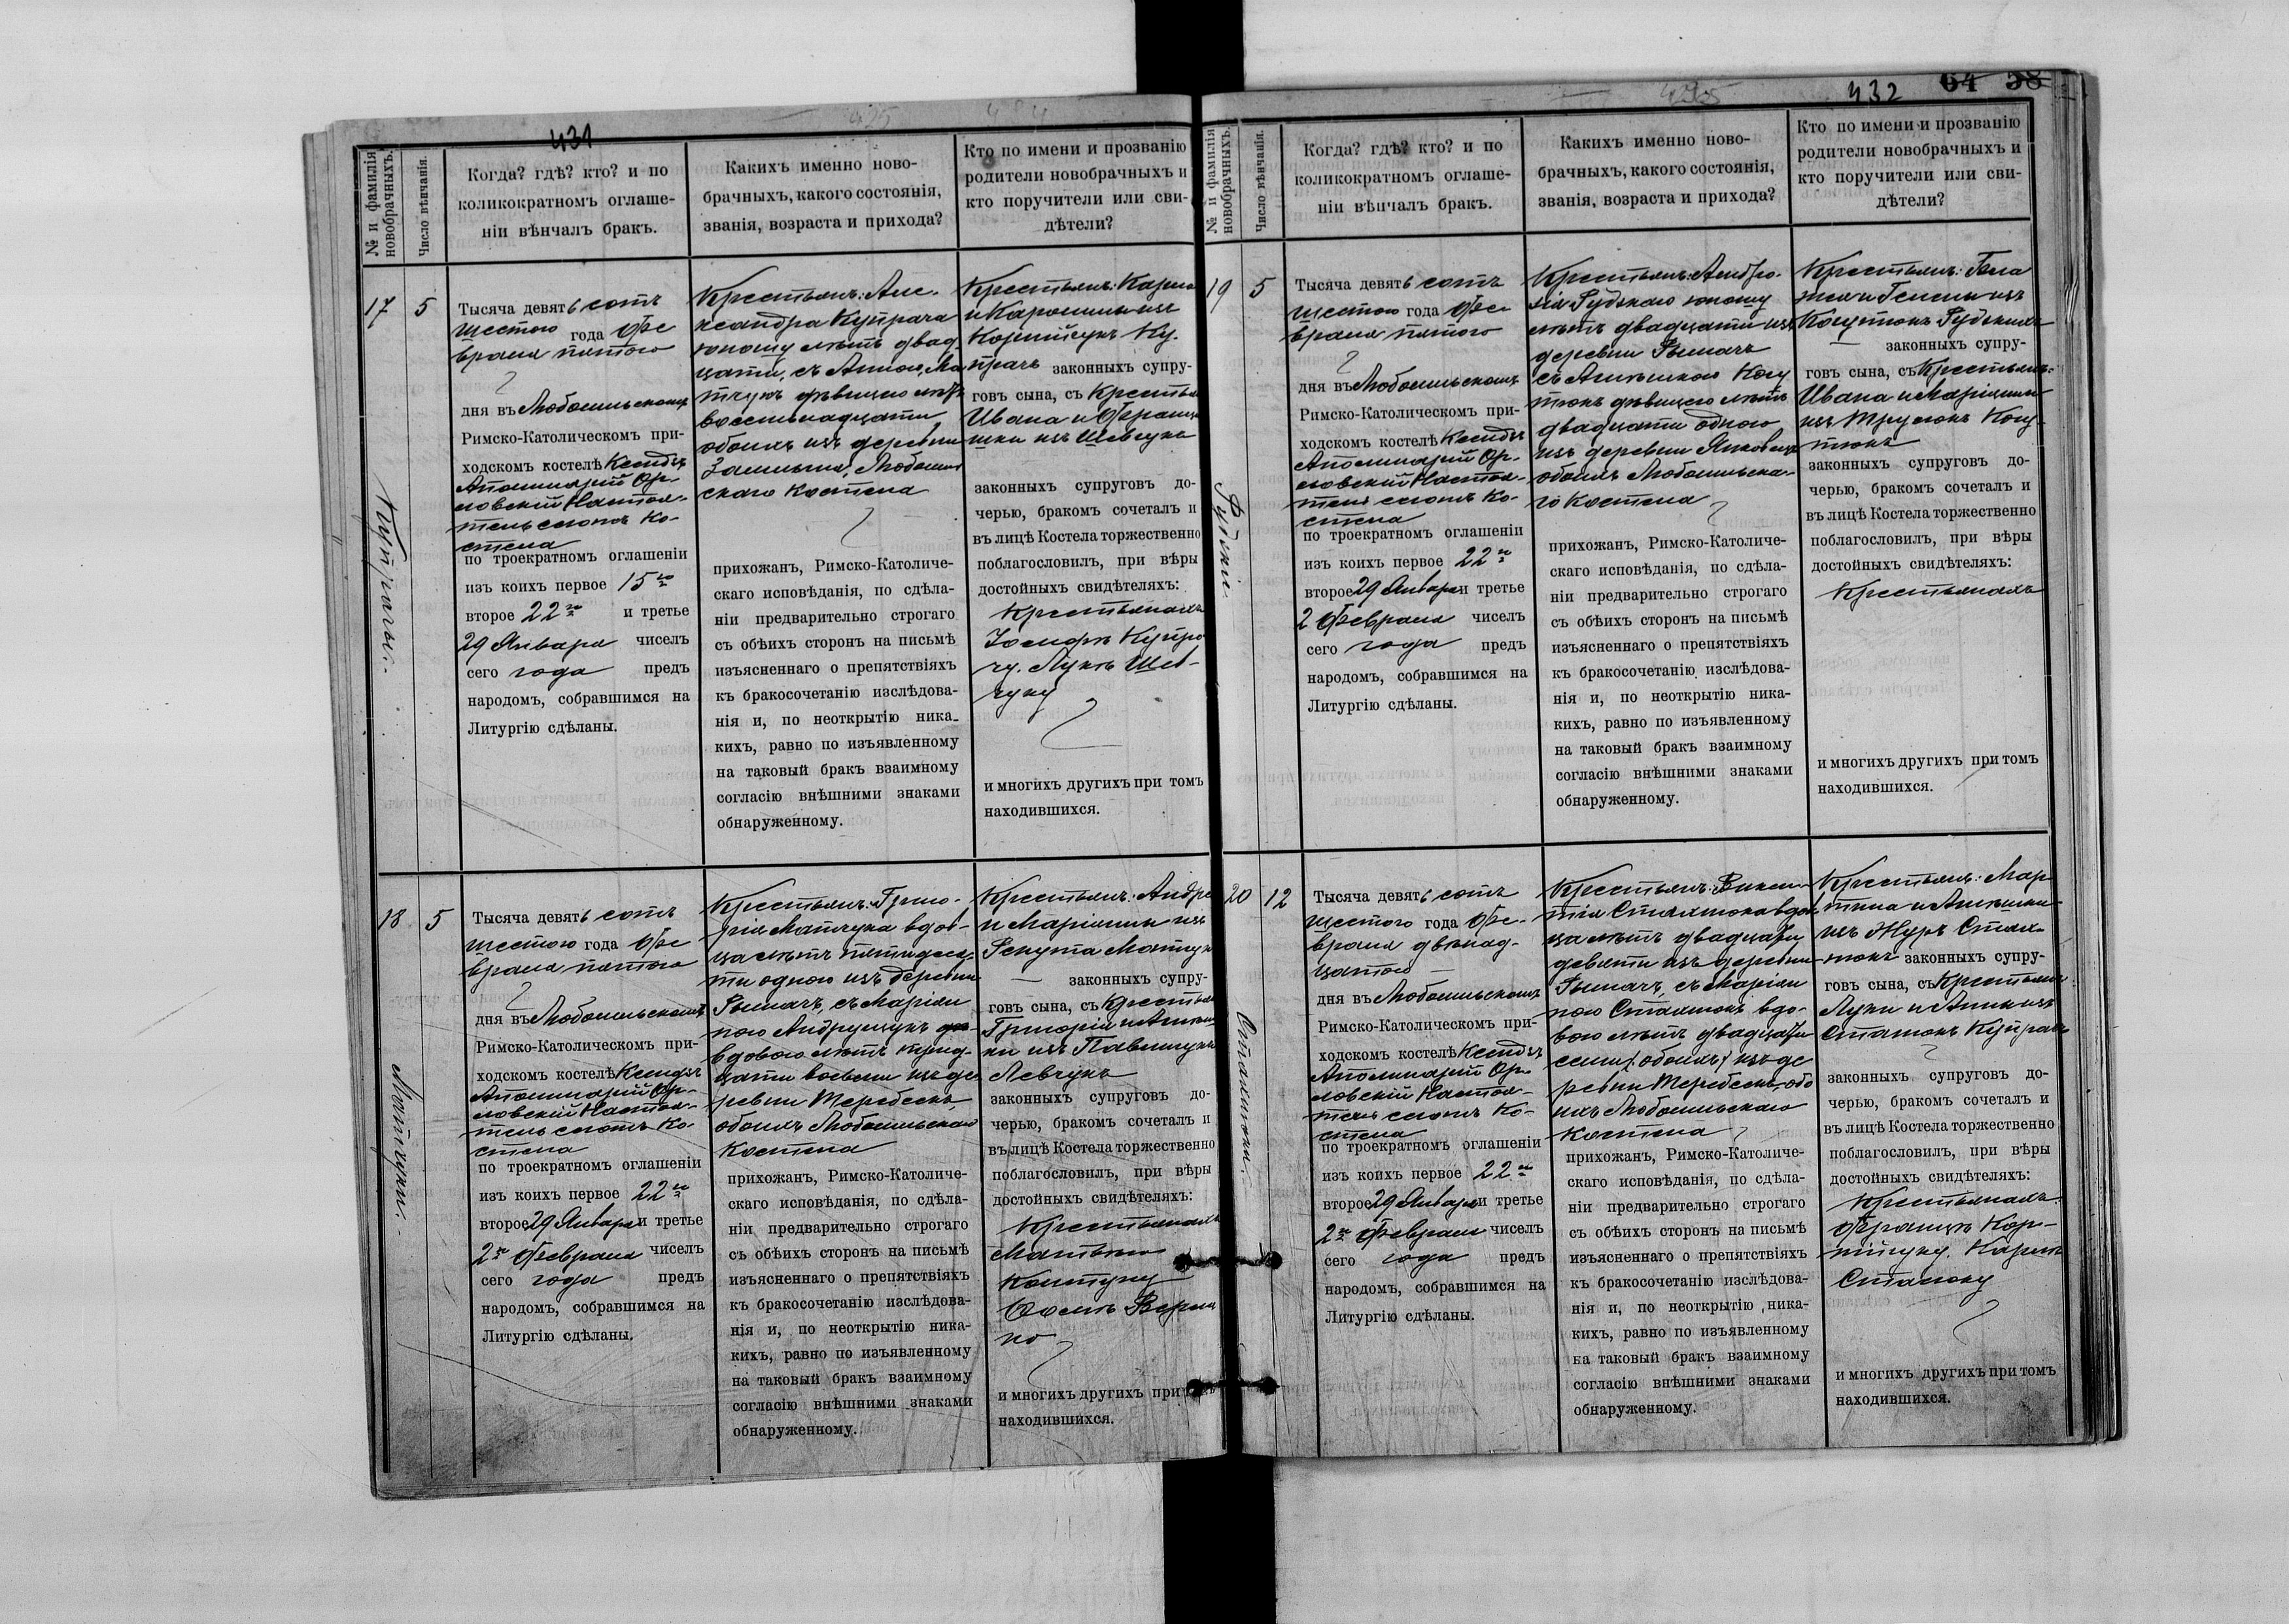 431
№ и фамилія
новобрачныхъ.
Число вѣнчанія.
Когда? гдѣ? кто? и по
коликократномъ оглаше-
ніи вѣнчалъ бракъ.
Какихъ именно ново-
брачныхъ, какого состоянія,
званія, возраста и прихода?
Кто по имени и прозванію
родители новобрачныхъ и
кто поручители или сви-
дѣтели?
17
5
Тысяча девятьсотъ
шестого года Фе
враля пятого
дня въ Любомльскомъ
Римско-Католическомъ при-
ходскомъ костелѣ Ксендзъ
Аполинарій Ор-
ловскій Настоя-
тель сього Ко-
стела
по троекратномъ оглашеніи
изъ коихъ первое 15го
второе 22го и третье
29 Января чиселъ
сего года предъ
народомъ, собравшимся на
Литургію сдѣланы.
Крестьянъ: Але-
ксандра Купрача
юношу лѣтъ двад-
цати, съ Анною Ма
тчукъ дѣвицею лѣтъ
восемнадцати
обоихъ изъ деревни
Любомль
скаго Костела
прихожанъ, Римско-Католиче-
скаго исповѣданія, по сдѣла-
ніи предварительно строгаго
съ обѣихъ сторонъ на письмѣ
изъясненнаго о препятствіяхъ
къ бракосочетанію изслѣдова-
нія и, по неоткрытію ника-
кихъ, равно по изъявленному
на таковый бракъ взаимному
согласію внѣшними знаками
обнаруженному.
Крестьянъ: Карла
и Каролины изъ
Корнійчукъ Ку-
прачъ законныхъ супру-
говъ сына, съ Крестьян
Ивана и Франци
шки изъ Шевчукъ
законныхъ супруговъ до-
черью, бракомъ сочеталъ и
въ лицѣ Костела торжественно
поблагословилъ, при вѣры
достойныхъ свидѣтеляхъ:
Крестьянахъ
Іосифѣ Купра
чу, Лукѣ Шев-
чуку
и многихъ другихъ при томъ
находившихся.
18
5
Матчуки.
Тысяча девятьсотъ
шестого года Фе
враля пятого
дня въ Любомльскомъ
Римско-Католическомъ при-
ходскомъ костелѣ Ксендзъ
Аполинарій Ор-
ловскій Настоя-
тель сього Ко-
стела
по троекратномъ оглашеніи
изъ коихъ первое 22го
второе 29 Января и третье
2го Февраля чиселъ
сего года предъ
народомъ, собравшимся на
Литургію сдѣланы.
Крестьянъ: Григо-
рія Матчука вдов-
ца лѣтъ пятидеся-
ти одного изъ деревни
Рымачъ, съ Маріан
ною Андрущукъ
вдовою лѣтъ тридц-
цати восьми изъ де
ревни Теребеекъ,
обоихъ Любомльскаго
Костела
прихожанъ, Римско-Католиче-
скаго исповѣданія, по сдѣла-
ніи предварительно строгаго
съ обѣихъ сторонъ на письмѣ
изъясненнаго о препятствіяхъ
къ бракосочетанію изслѣдова-
нія и, по неоткрытію ника-
кихъ, равно по изъявленному
на таковый бракъ взаимному
согласію внѣшними знаками
обнаруженному.
Крестьянъ: Андре
и Маріанны изъ
Матчук
законныхъ супру-
говъ сына, съ Крестьян
Григорія и Агнѣш
ки изъ Павлищукъ
Левчукъ
законныхъ супруговъ до-
черью, бракомъ сочеталъ и
въ лицѣ Костела торжественно
поблагословилъ, при вѣры
достойныхъ свидѣтеляхъ:
Крестьянахъ
Матвѣю
и многихъ другихъ при томъ
находившихся.
432
64 58
№ и фамилія
новобрачныхъ.
Число вѣнчанія.
Когда? гдѣ? кто? и по
коликократномъ оглаше-
ніи вѣнчалъ бракъ.
Какихъ именно ново-
брачныхъ, какого состоянія,
званія, возраста и прихода?
Кто по имени и прозванію
родители новобрачныхъ и
кто поручители или сви-
дѣтели?
19
5
Рудскіи.
Тысяча девятьсотъ
шестого года Фе
враля пятого
дня въ Любомльскомъ
Римско-Католическомъ при-
ходскомъ костелѣ Ксендзъ
Аполинарій Ор-
ловскій Настоя-
тель сього Ко-
стела
по троекратномъ оглашеніи
изъ коихъ первое 22го
второе 29 Января и третье
2 Февраля чиселъ
сего года предъ
народомъ, собравшимся на
Литургію сдѣланы.
Крестьянъ: Андро-
нія Рудскаго юношу
лѣтъ двадцати изъ
деревни Рымачъ
съ Агнѣшкою Когу
тюкъ дѣвицею лѣтъ
двадцати одного
изъ деревни
обоихъ Любомльска-
го Костела
прихожанъ, Римско-Католиче-
скаго исповѣданія, по сдѣла-
ніи предварительно строгаго
съ обѣихъ сторонъ на письмѣ
изъясненнаго о препятствіяхъ
къ бракосочетанію изслѣдова-
нія и, по неоткрытію ника-
кихъ, равно по изъявленному
на таковый бракъ взаимному
согласію внѣшними знаками
обнаруженному.
Крестьянъ:
изъ
Когутюкъ Рудскихъ
законныхъ супру-
говъ сына, съ Крестьянъ:
Ивана и Маріанны
изъ Когу
тюкъ
законныхъ супруговъ до-
черью, бракомъ сочеталъ и
въ лицѣ Костела торжественно
поблагословилъ, при вѣры
достойныхъ свидѣтеляхъ:
Крестьянахъ
и многихъ другихъ при томъ
находившихся.
20
12
Тысяча девятьсотъ
шестого года Фе-
враля двѣнад-
цатого
дня въ Любомльскомъ
Римско-Католическомъ при-
ходскомъ костелѣ Ксендзъ
Аполинарій Ор-
ловскій Настоя-
тель сього Ко-
стела
по троекратномъ оглашеніи
изъ коихъ первое 22го
второе 29 Января и третье
2го Февраля чиселъ
сего года предъ
народомъ, собравшимся на
Литургію сдѣланы.
Крестьянъ: Викен-
тія вдов
ца лѣтъ двадцати
девяти изъ деревни
Рымачъ, съ Маріан
ною вдо-
вою лѣтъ двадцати
семи (обоихъ) изъ де
ревни Теребеекъ обо
ихъ Любомльскаго
Костела
прихожанъ, Римско-Католиче-
скаго исповѣданія, по сдѣла-
ніи предварительно строгаго
съ обѣихъ сторонъ на письмѣ
изъясненнаго о препятствіяхъ
къ бракосочетанію изслѣдова-
нія и, по неоткрытію ника-
кихъ, равно по изъявленному
на таковый бракъ взаимному
согласію внѣшними знаками
обнаруженному.
Крестьянъ: Мар-
тина и Агнѣшки
изъ
законныхъ супру-
говъ сына, съ Крестьянъ
Луки и Анны изъ
законныхъ супруговъ до-
черью, бракомъ сочеталъ и
въ лицѣ Костела торжественно
поблагословилъ, при вѣры
достойныхъ свидѣтеляхъ:
Крестьянахъ
Францѣ Кор-
нійчуку, Карлѣ
и многихъ другихъ при томъ
находившихся.